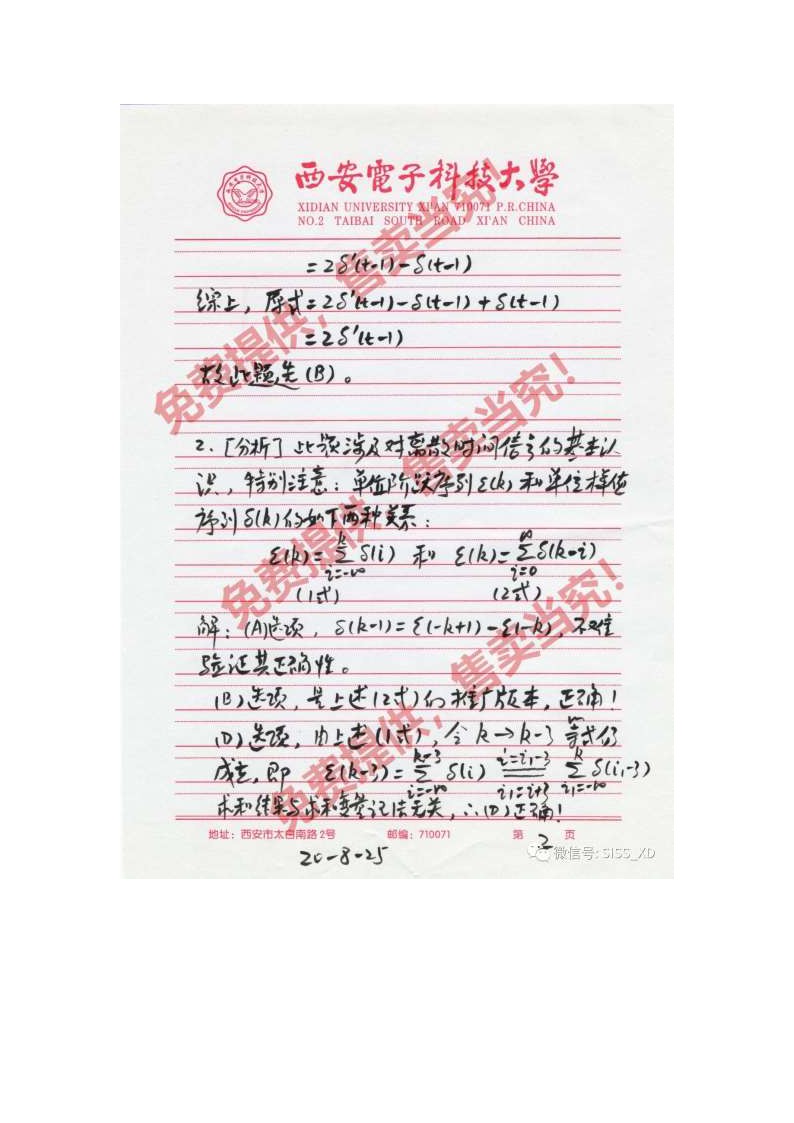 西安電子科技大學
XIDIAN UNIVERSITY XI'AN 710071 P.R.CHINA
NO.2 TAIBAI SOUTH ROAD XI'AN CHINA
=2δ'(t-1)-δ(t-1)
综上，原式=2δ'(t-1)-δ(t-1)+δ(t-1)
=2δ'(t-1)
故此题选(B)。
免费提供，售卖当究！
2.[分析]此题涉及对离散时间信号的基本认
识，特别注意：单位阶跃序列ε(k)和单位样值
序列δ(k)的如下两种关系：
ε(k)=∑_{i=-∞}^{k}δ(i) 和 ε(k)=∑_{i=0}^{∞}δ(k-i)
(1式) (2式)
免费提供，售卖当究！
解：(A)选项，δ(k-1)=ε(-k+1)-ε(-k)，不难
验证其正确性。
(B)选项，是上述(2式)的推广版本，正确！
(D)选项，由上述(1式)，令k→k-3等式仍
成立，即 ε(k-3)=∑_{i=-∞}^{k-3}δ(i) i=i₁-3 i₁=i+3 ∑_{i₁=-∞}^{k}δ(i₁-3)
求和结果与求和变量记法无关，∴(D)正确！
免费提供，售卖当究！
地址：西安市太白南路2号 邮编：710071 第2页
20-8-25
微信号: SISS_XD